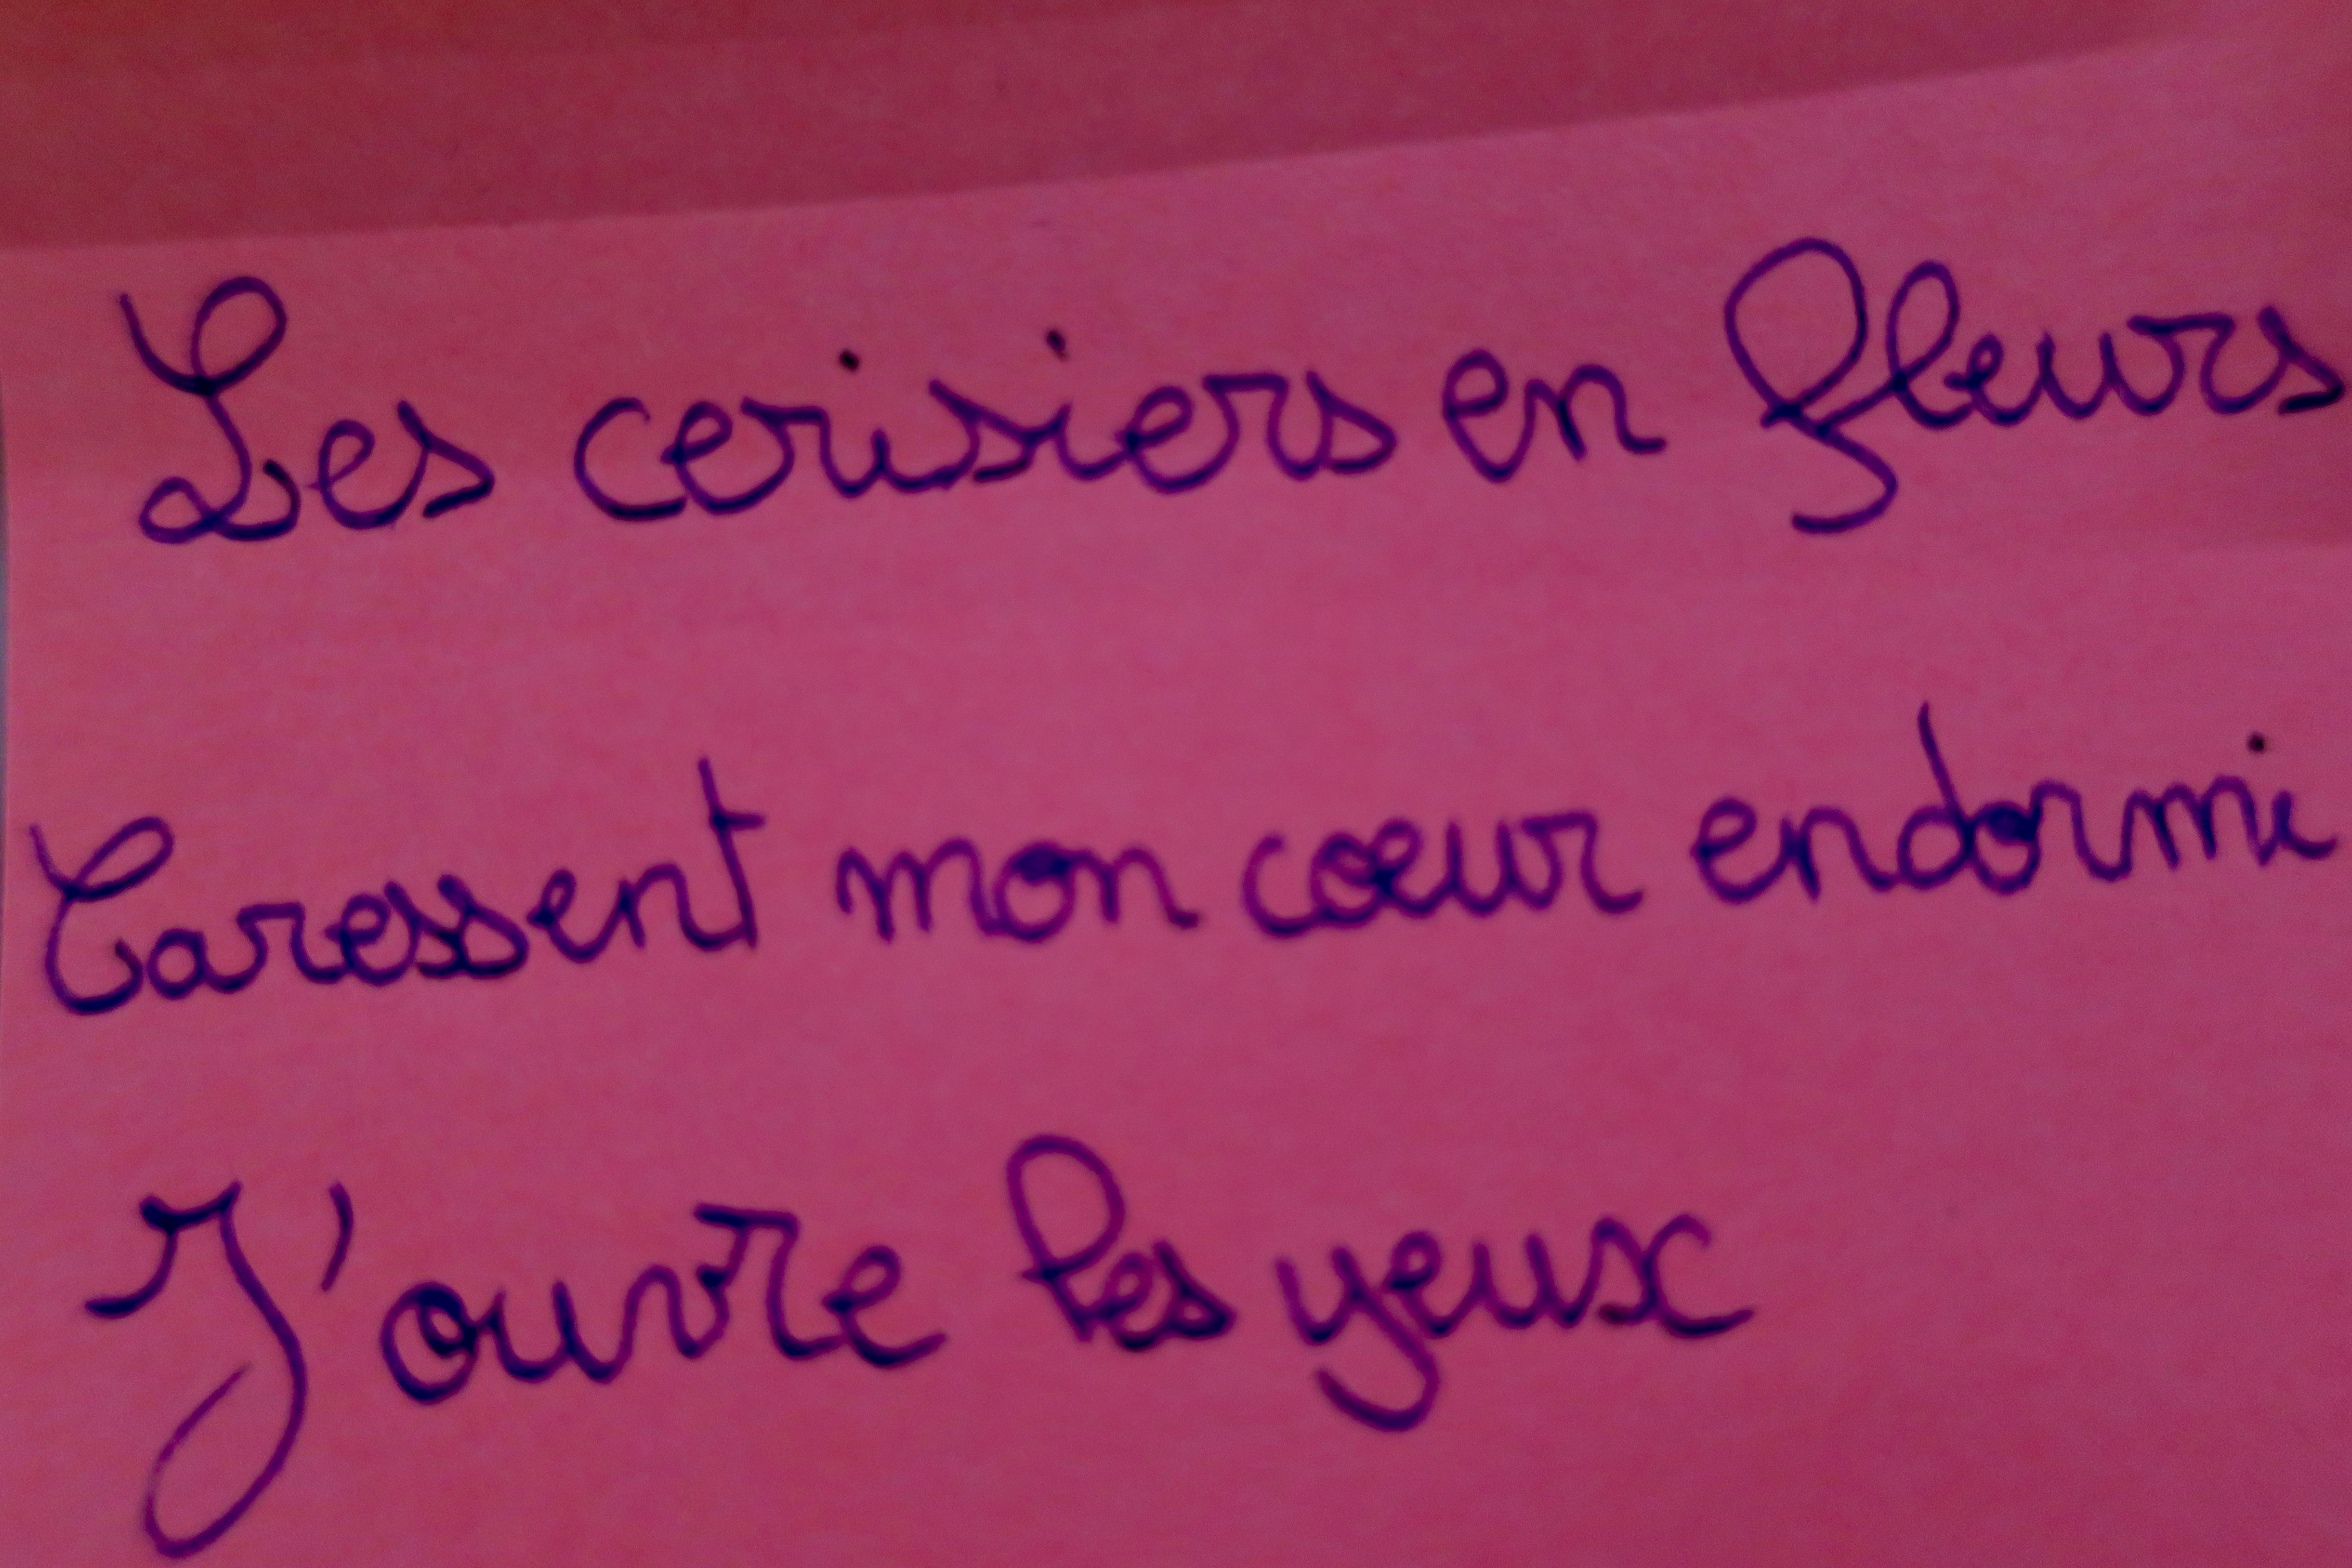 Les cerisiers en fleurs
Caressent mon cœur endormi
J'ouvre les yeux